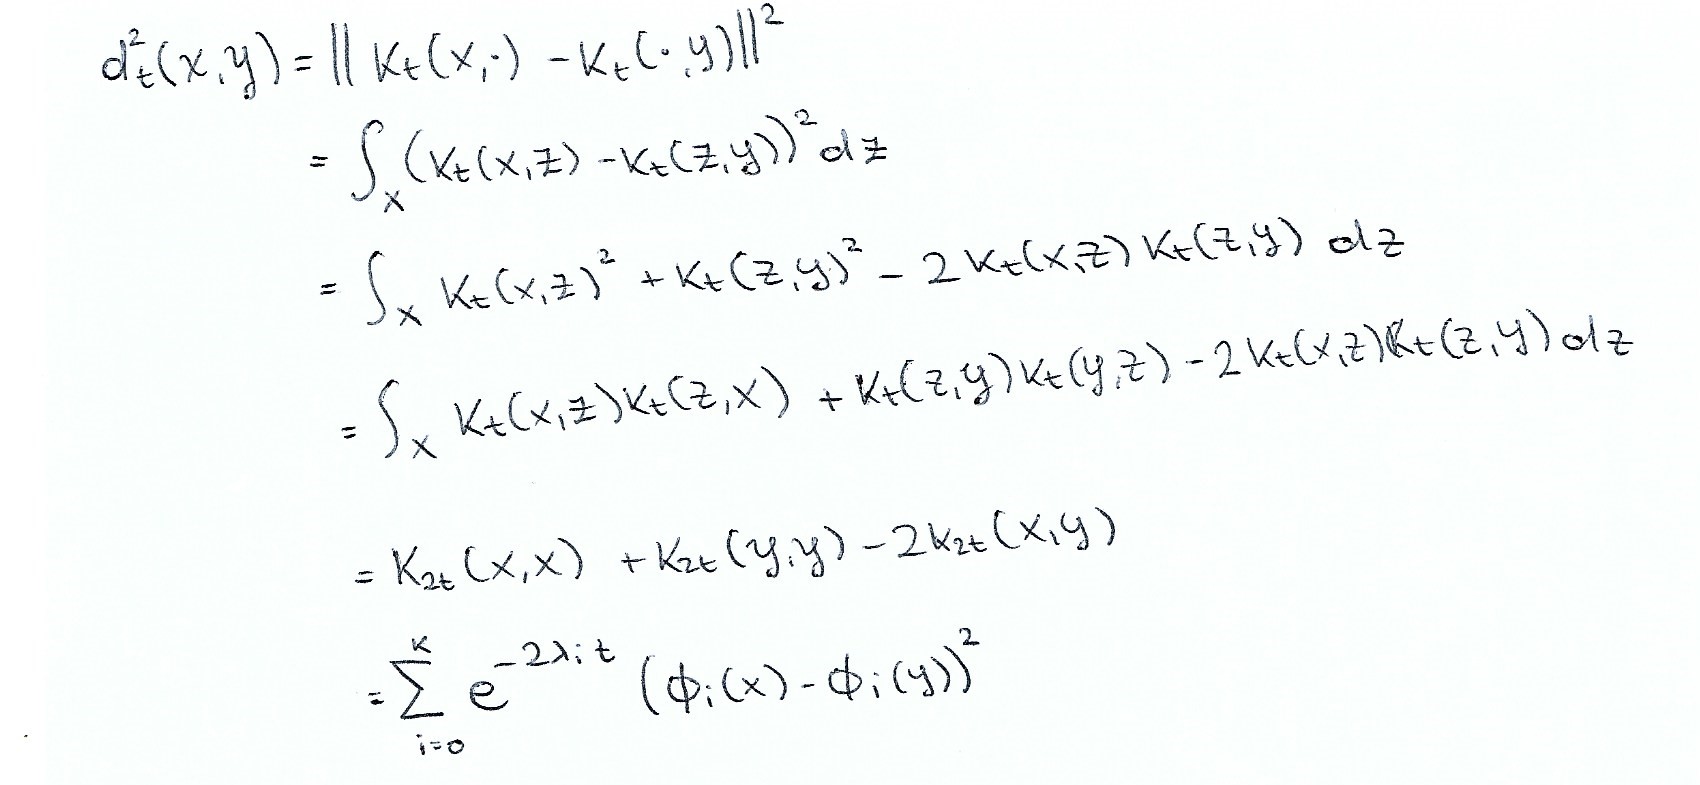 d²ₜ(x,y) = || Kₜ(x,·) - Kₜ(·,y)||²
= ∫_X (Kₜ(x,z) - Kₜ(z,y))² dz
= ∫_X Kₜ(x,z)² + Kₜ(z,y)² - 2 Kₜ(x,z) Kₜ(z,y) dz
= ∫_X Kₜ(x,z)Kₜ(z,x) + Kₜ(z,y)Kₜ(y,z) - 2 Kₜ(x,z)Kₜ(z,y) dz
= K₂ₜ(x,x) + K₂ₜ(y,y) - 2K₂ₜ(x,y)
= ∑_{i=0}^{K} e^{-2λᵢt} (ϕᵢ(x) - ϕᵢ(y))²